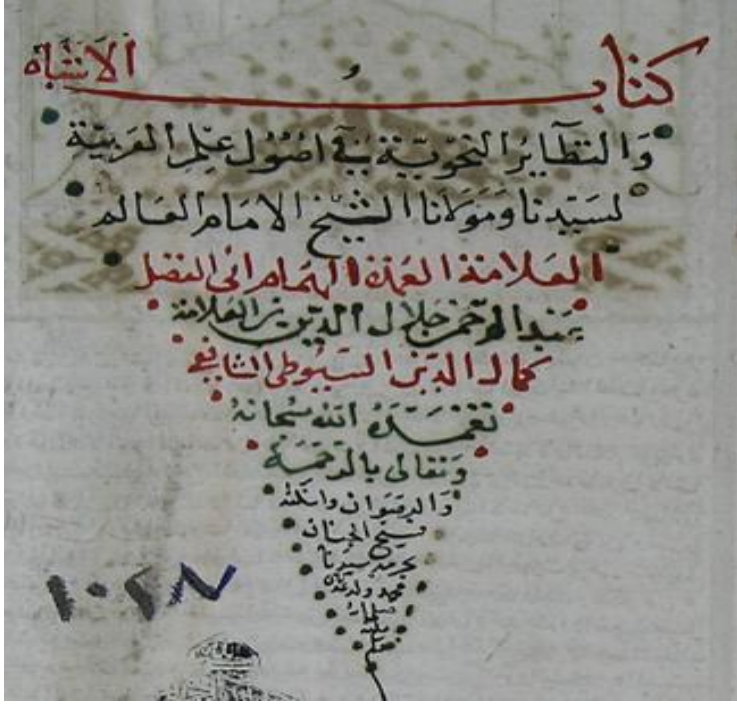 كتاب الاشباه
و
والنظاير النحوية في اصول علم العربية
لسيدنا ومولانا الشيخ الامام العالم
العلامة العمدة الهمام ابى الفضل
عبد الرحمن جلال الدين بن العلامة
كمال الدين السيوطى الشافعي
تغمده الله سبحانه
وتعالى بالرحمة
والرضوان واسكنه
فسيح الجنان
بحرمة سيدنا
محمد ولد عدنان
صلى الله
عليه
١٠٢٨